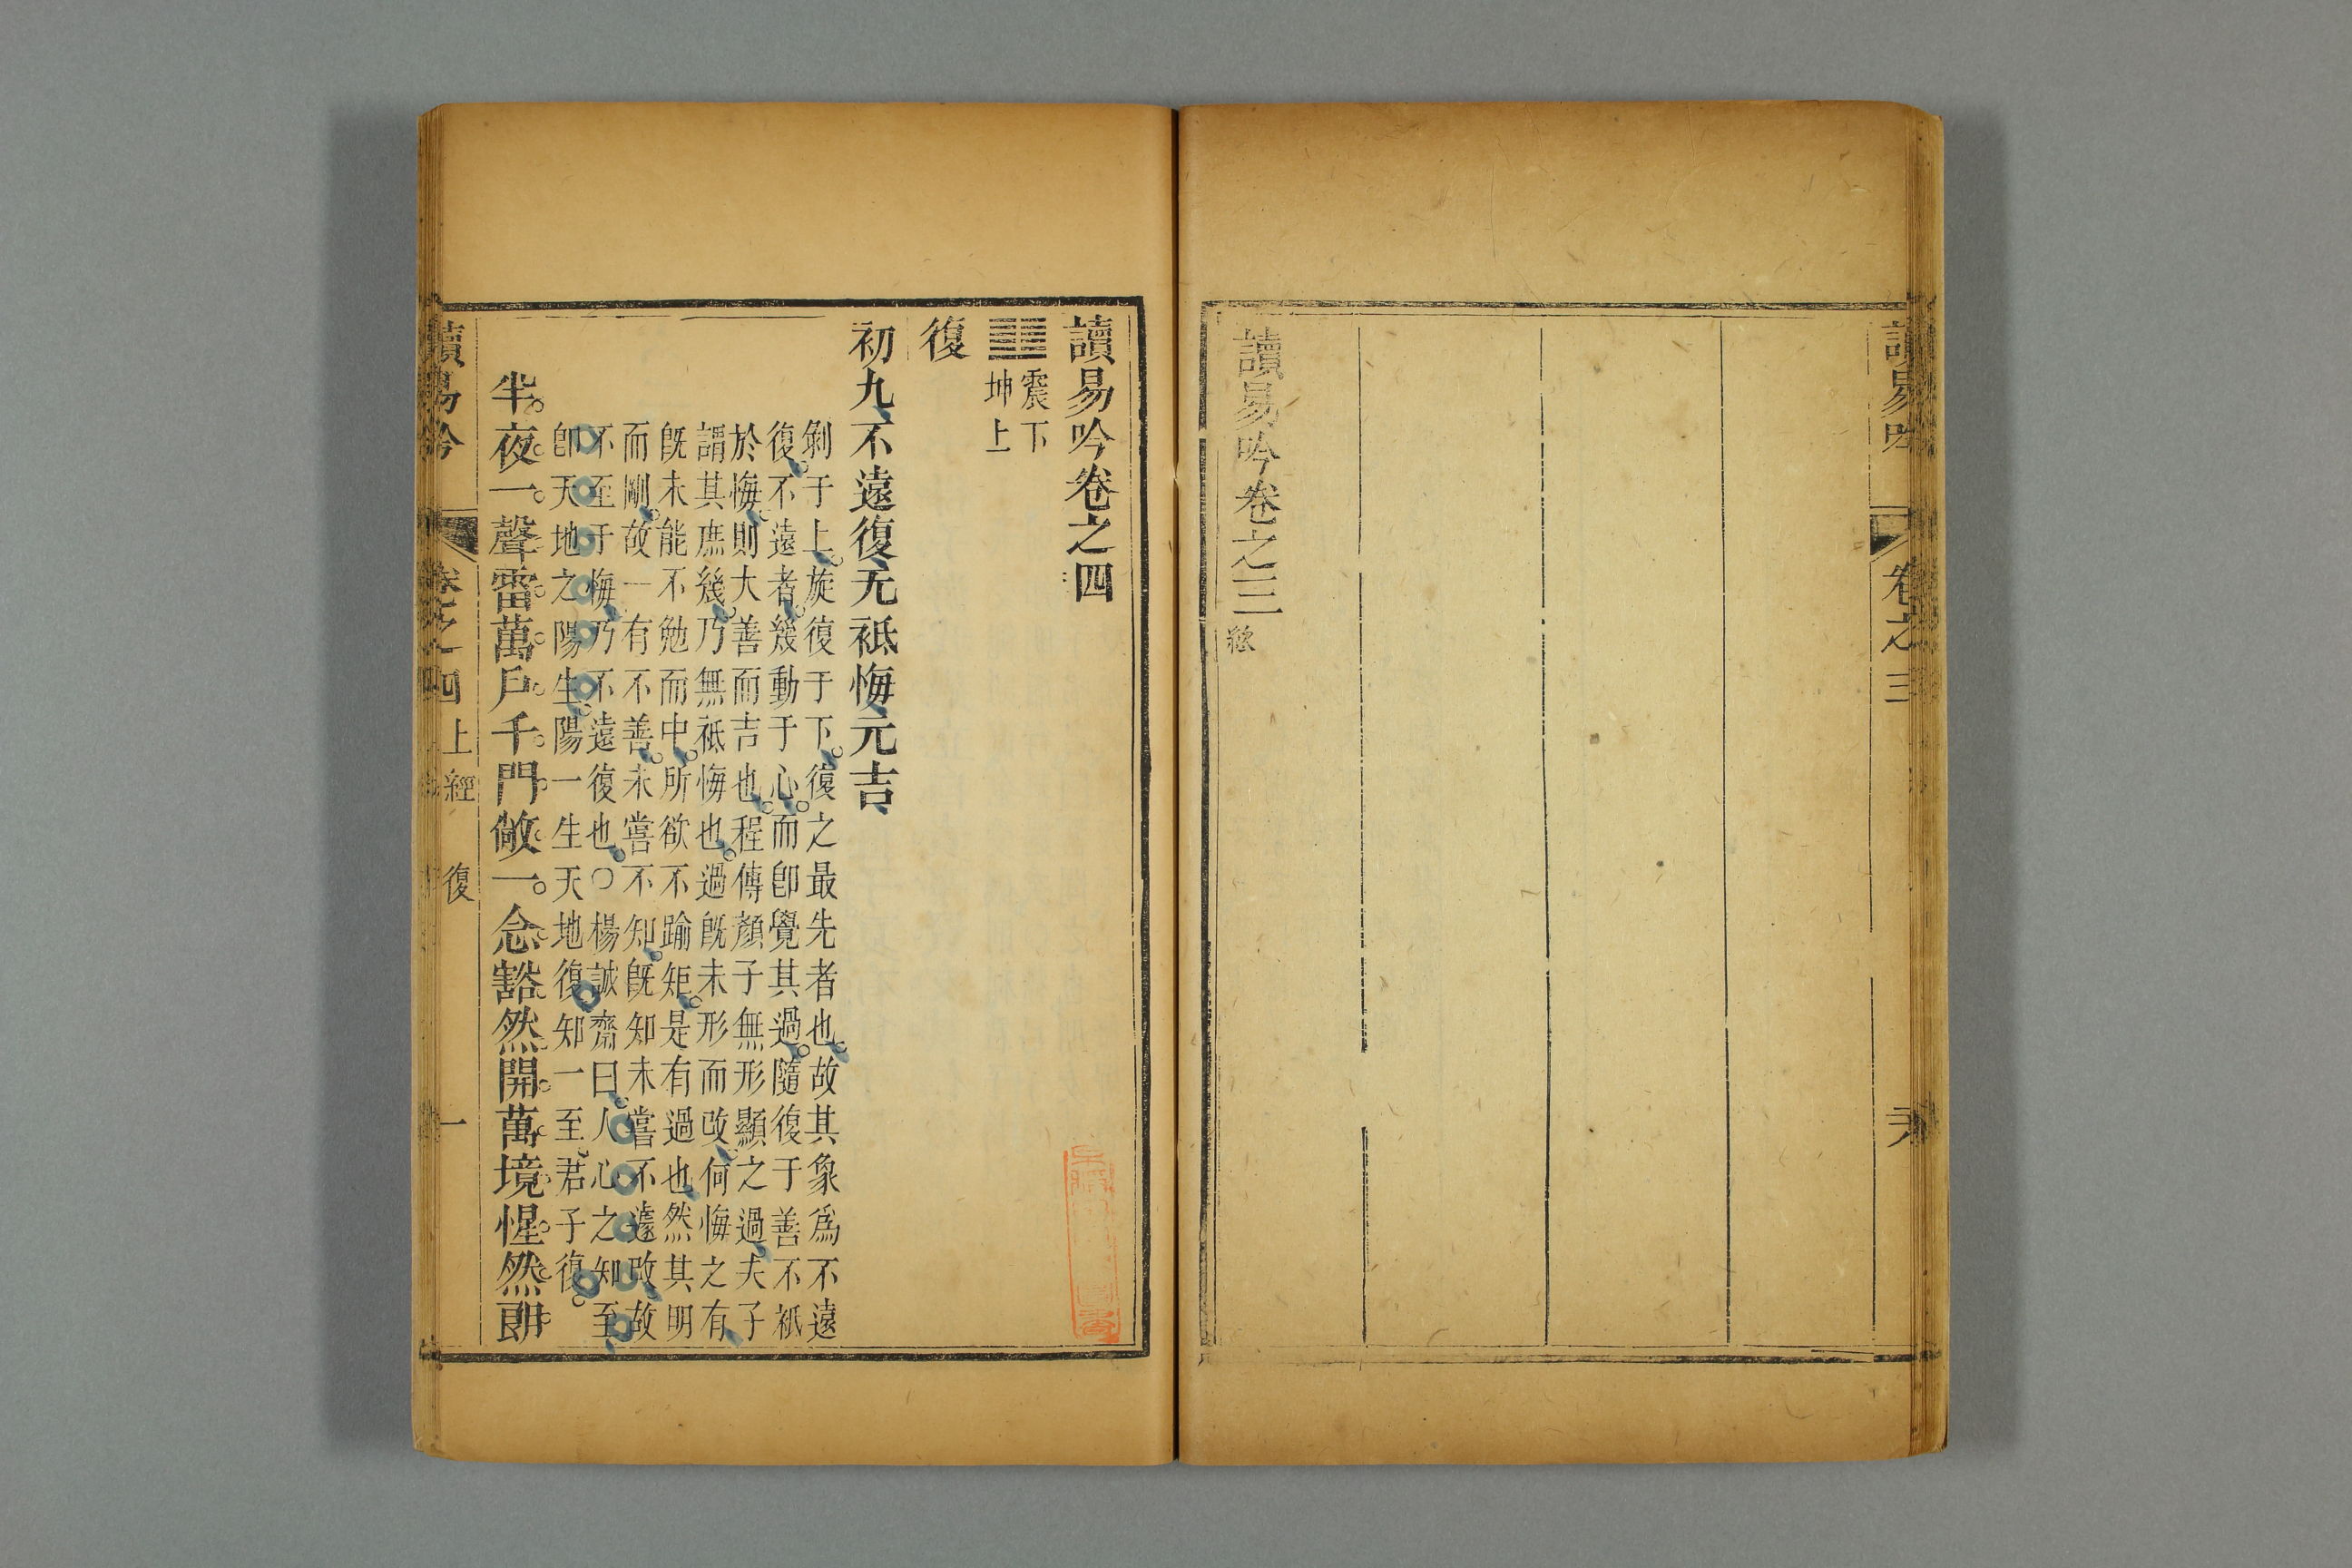 讀易吟
卷之三
讀易吟卷之三終
讀易吟卷之四
震下
坤上
復
初九不遠復无祗悔元吉
剝于上旋復于下復之最先者也故其象為不遠
復不遠者幾動于心而卽覺其過隨復于善不祇
於悔則大善而吉也程傳顏子無形顯之過夫子
謂其庶幾乃無祗悔也過旣未形而改何悔之有
旣未能不勉而中所欲不踰矩是有過也然其明
而剛故一有不善未嘗不知旣知未嘗不遽改故
不至于悔乃不遠復也○楊誠齋曰人心之知至
卽天地之陽生陽一生天地復知一至君子復
半夜一聲雷萬戶千門敞一念豁然開萬境惺然朗
讀易吟
卷之四
上經
復
一